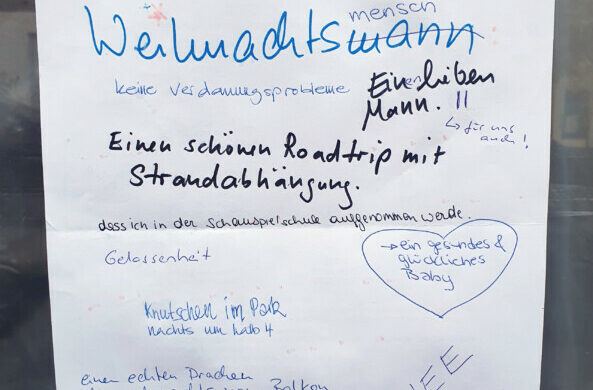 mensch
Weihnachtsmann
keine Verdauungsprobleme
Einen lieben
Mann. !!
↳ für uns
auch!
Einen schönen Roadtrip mit
Strandabhängung.
dass ich in der Schauspielschule aufgenommen werde.
Gelassenheit
→ ein gesundes &
glückliches
Baby
Knutschen im Park
nachts um halb 4
einen echten Drachen
Balkon